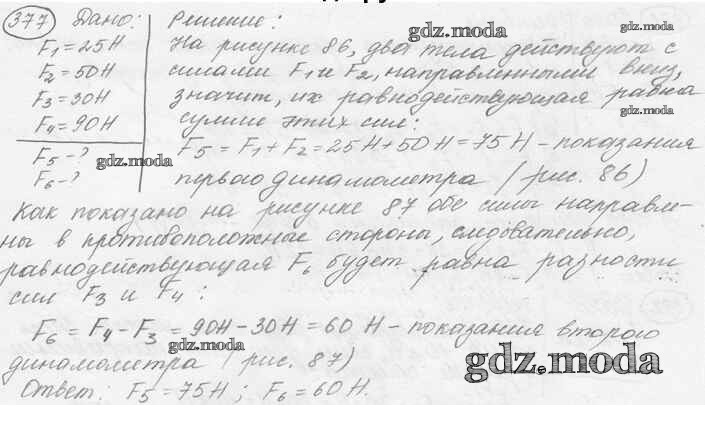 377 Дано: Решение:
gdz.moda
F₁ = 25Н На рисунке 86, два тела действуют с
F₂ = 50Н силами F₁ и F₂, направленными вниз,
gdz.moda
F₃ = 30Н значит, их равнодействующая равна
gdz.moda
F₄ = 90Н сумме этих сил:
F₅ - ? F₅ = F₁ + F₂ = 25Н + 50Н = 75Н - показания
gdz.moda
F₆ - ? первого динамометра (рис. 86)
Как показано на рисунке 87 обе силы направле-
ны в противоположные стороны, следовательно,
равнодействующая F₆ будет равна разности
сил F₃ и F₄:
F₆ = F₄ - F₃ = 90Н - 30Н = 60 Н - показания второго
gdz.moda
динамометра (рис. 87)
gdz.moda
Ответ: F₅ = 75Н; F₆ = 60Н.